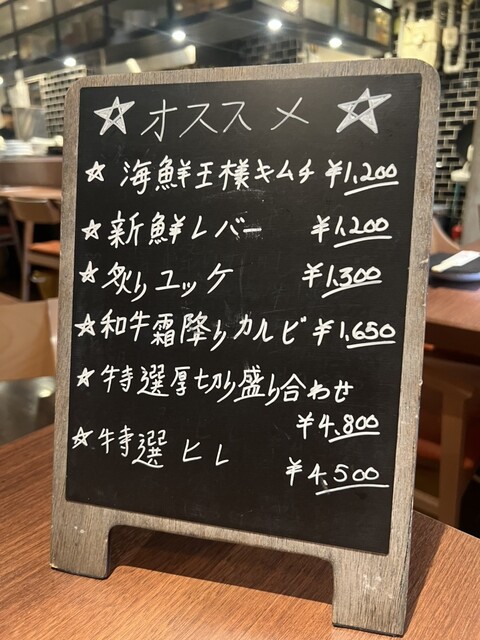 ☆オススメ☆
☆ 海鮮王様キムチ ¥1,200
☆ 新鮮レバー ¥1,200
☆ 炙りユッケ ¥1,300
☆ 和牛霜降りカルビ ¥1,650
☆ 特選厚切り盛り合わせ
¥4.800
☆ 特選 ヒレ ¥4,500